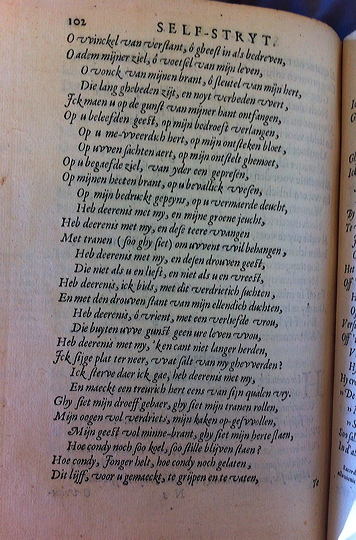 102
SELF-STRYT.
O vvinckel van verstant, ô gheest in als bedreven,
O adem mijner ziel, ô voetsel van mijn leven,
O vonck van mijnen brant, ô sleutel van mijn hert,
Die lang ghebeden zijt, en noyt verbeden vvert,
Ick maen u op de gunst van mijner hant ontfangen,
Op u beleefden geest, op mijn bedroeft verlangen,
Op u me-vveerdich hert, op mijn ontsteken bloet,
Op uvven sachten aert, op mijn ontstelt ghemoet,
Op u begaefde ziel, van yder een gepresen,
Op mijnen heeten brant, op u bevallick vvesen,
Op mijn bedruckt gepeyns, op u vermaerde deucht,
Heb deerenis met my, en mijne groene jeucht,
Heb deerenis met my, en dese teere vvangen
Met tranen (soo ghy siet) om uvvent vvil behangen,
Heb deerenis met my, en desen drouven geest,
Die niet als u en lieft, en niet als u en vreest,
Heb deerenis, ick bids, met dit verdrietich suchten,
En met den drouven stant van mijn ellendich duchten,
Heb deerenis, ô vrient, met een verliefde vrou,
Die buyten uvve gunst geen ure leven vvou,
Heb deerenis met my, 'ken cant niet langer herden,
Ick sijge plat ter neer, vvat sal't van my ghevverden?
Ick sterve daer ick gae, heb deerenis met my,
En maeckt een treurich hert eens van sijn qualen vry.
Ghy siet mijn droeff gebaer, ghy siet mijn tranen rollen,
Mijn oogen vol verdriets, mijn kaken op-gesvvollen,
Mijn geest vol minne-brant, ghy siet mijn herte slaen,
Hoe condy noch soo koel, soo stille blijven staen?
Hoe condy, Jonger helt, hoe condy noch gelaten,
Dit lijff, voor u gemaeckt, te grijpen en te vaten,